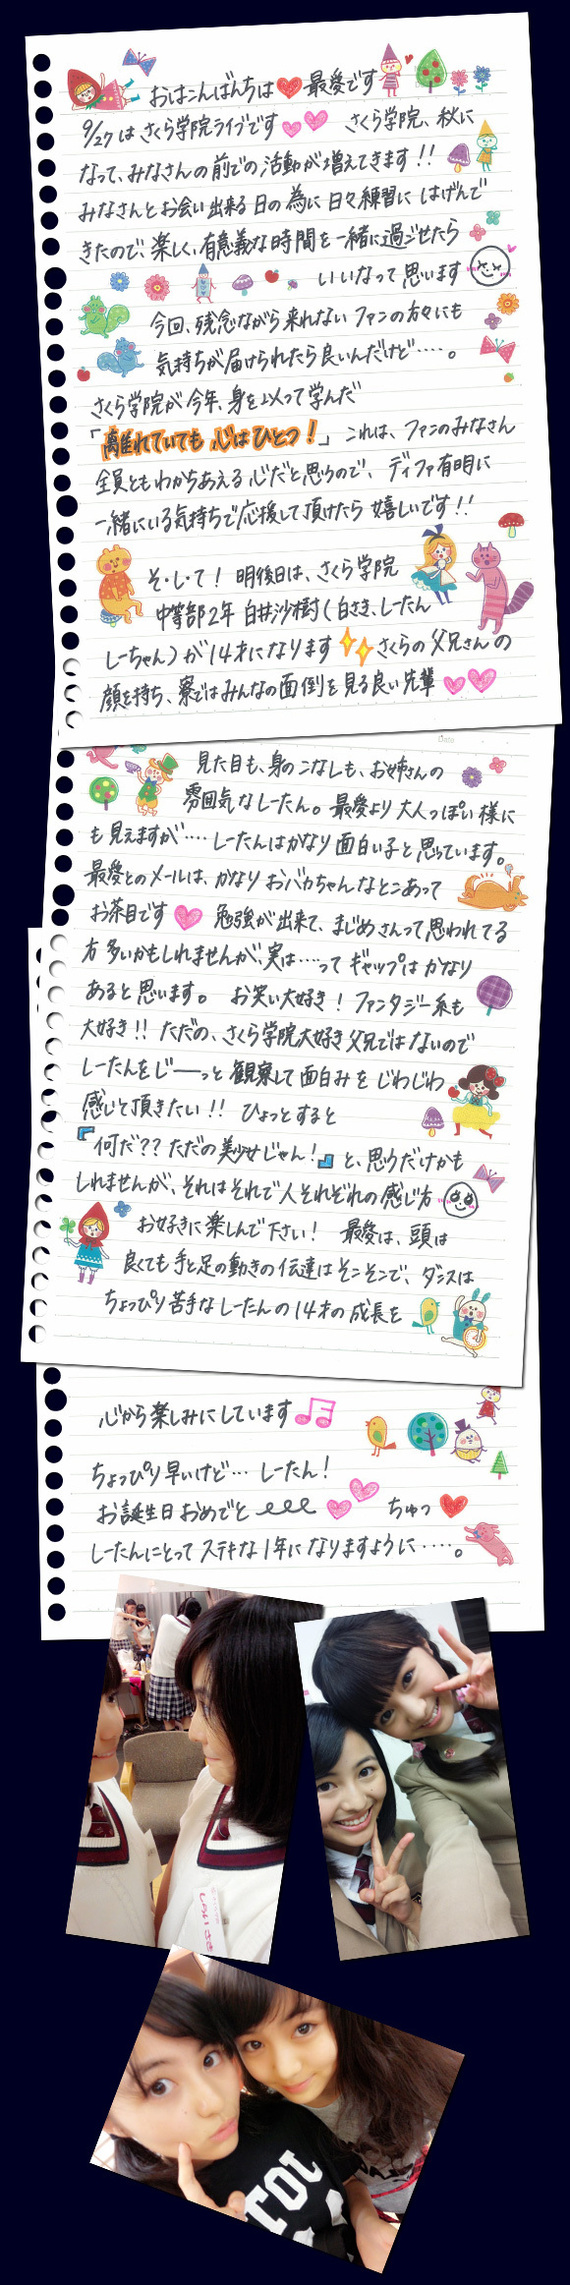 おはこんばんちは♥最愛です
9/27はさくら学院ライブです♥♥ さくら学院、秋に
なって、みなさんの前での活動が増えてきます!!
みなさんとお会い出来る日の為に日々練習にはげんで
きたので、楽しく、有意義な時間を一緒に過ごせたら
いいなって思います
今回、残念ながら来れないファンの方々にも
気持ちが届けられたら良いんだけど‥‥。
さくら学院が今年、身を以って学んだ
「離れていても心はひとつ!」これは、ファンのみなさん
全員ともわかちあえる心だと思うので、ディファ有明に
一緒にいる気持ちで応援して頂けたら嬉しいです!!
そ・し・て! 明後日は、さくら学院
中等部2年 白井沙樹(白さき、しーたん
しーちゃん)が14才になります さくらの父兄さんの
顔を持ち、寮ではみんなの面倒を見る良い先輩♥♥
Date
見た目も、身のこなしも、お姉さんの
雰囲気なしーたん。最愛より大人っぽい様に
も見えますが‥‥しーたんはかなり面白い子と思っています。
最愛とのメールは、かなりおバカちゃんなとこあって
お茶目です♥ 勉強が出来て、まじめさんって思われてる
方多いかもしれませんが、実は‥‥ってギャップはかなり
あると思います。 お笑い大好き! ファンタジー系も
大好き!! ただの、さくら学院大好き父兄ではないので
しーたんをじーーっと観察して面白みをじわじわ
感じて頂きたい!! ひょっとすると
『何だ??ただの美少女じゃん!』と、思うだけかも
しれませんが、それはそれで人それぞれの感じ方
お好きに楽しんで下さい! 最愛は、頭は
良くても手と足の動きの伝達はそこそこで、ダンスは
ちょっぴり苦手なしーたんの14才の成長を
心から楽しみにしています♫
ちょっぴり早いけど… しーたん!
お誕生日おめでと ♥♥ ちゅっ♥
しーたんにとってステキな1年になりますように‥‥。
しらいさき